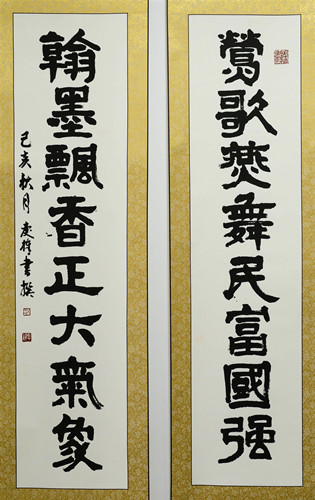 鶯歌燕舞民富國强
翰墨飄香正大氣象
己亥秋月慶雄書撰